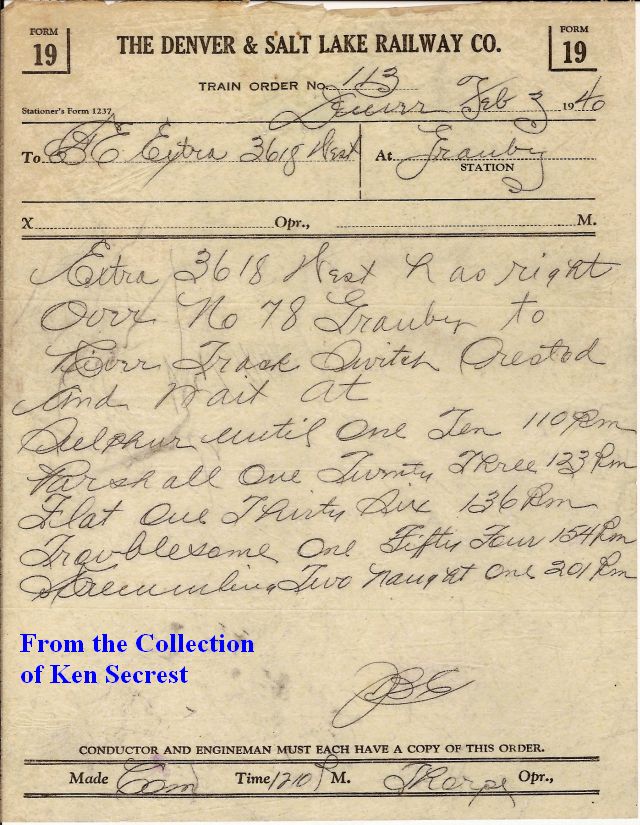 FORM 19
THE DENVER & SALT LAKE RAILWAY CO.
FORM 19
TRAIN ORDER No. 113
Stationer's Form 1237
Denver Feb 3 1940
To C&E Extra 3618 West At Granby
STATION
X Opr., M.
Extra 3618 West has right
Over No 78 Granby to
River Track Switch Orestod
and wait at
Sulphur until One Ten 110 Pm
Parshall One Twenty Three 123 Pm
Flat One Thirty Six 136 Pm
Troublesome One Fifty Four 154 Pm
Kremmling Two naught One 201 Pm
From the Collection
of Ken Secrest
CONDUCTOR AND ENGINEMAN MUST EACH HAVE A COPY OF THIS ORDER.
Made Com Time 1210 P M. Tharp Opr.,